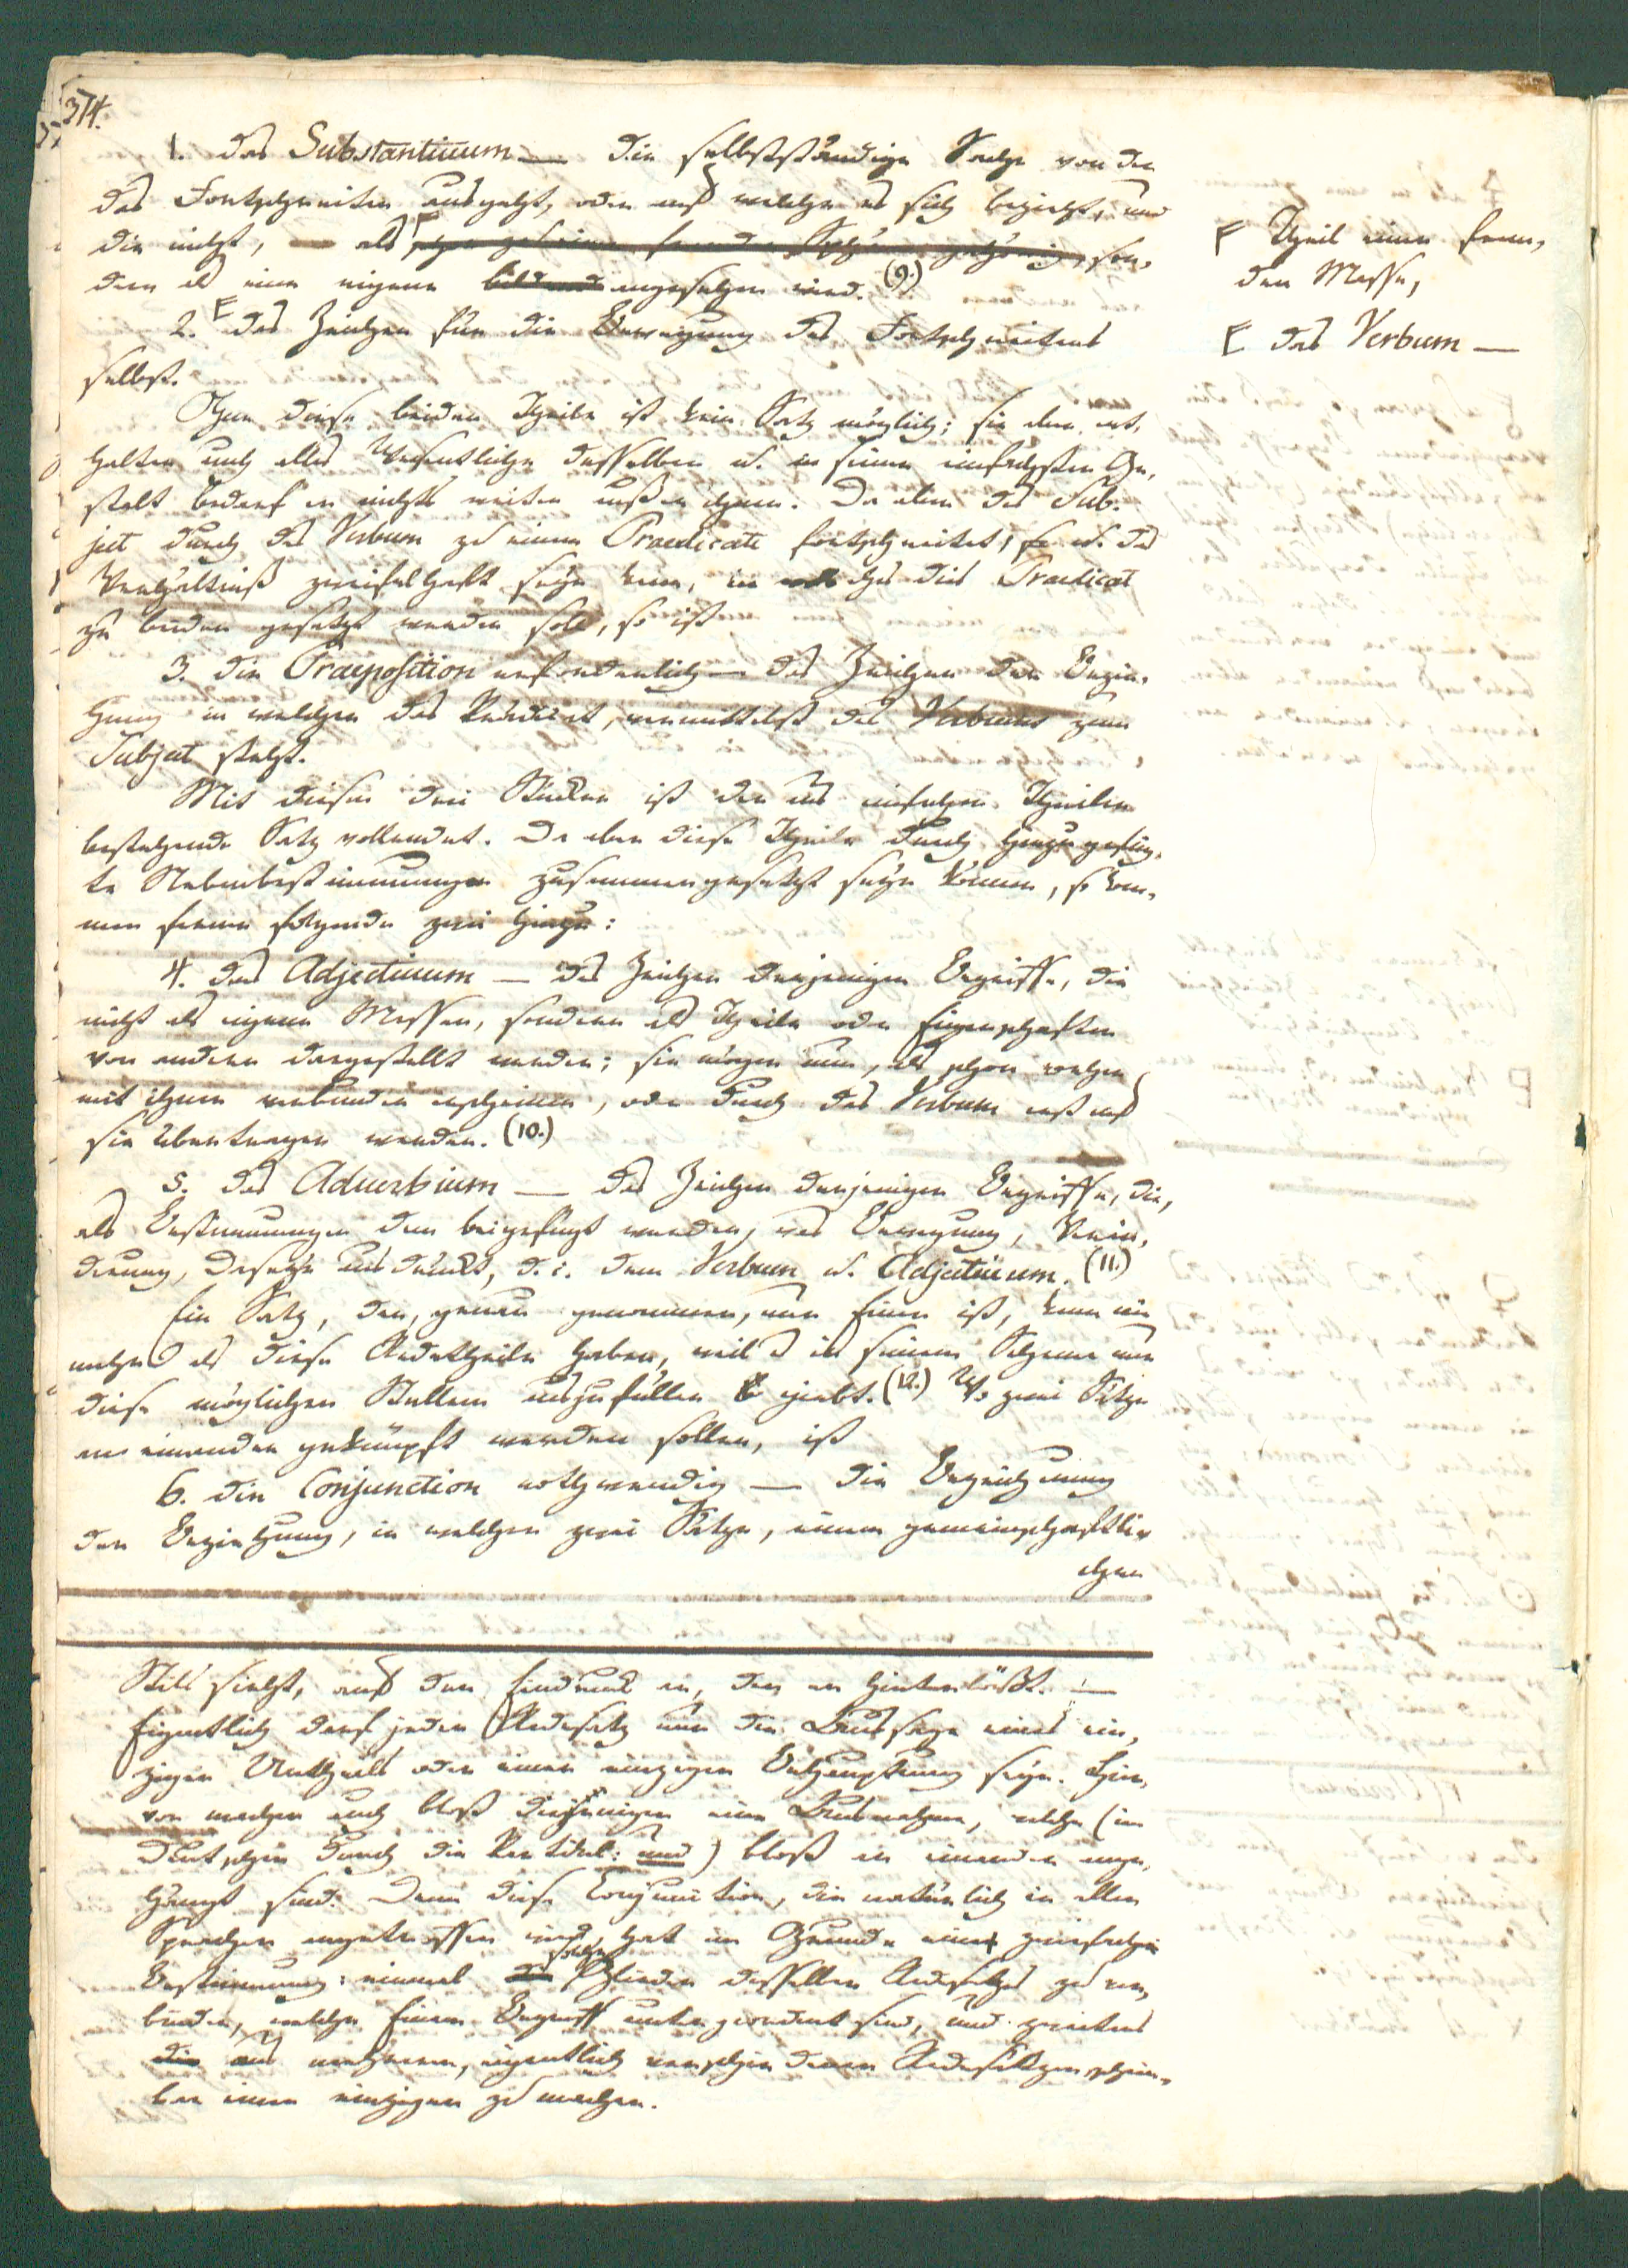 374.
1. das Substantiuum — die selbstständige Sache von der
das Fortschreiten ausgeht, oder auf welche es sich bezieht, und
die nicht, als schon zu einer fremden Sphäre gehörig, son-
dern als eine eigene bildend angesehen wird. (9.)
Theil einer frem-
den Masse,
2. das Zeichen für die Bewegung des Fortschreitens
das Verbum —
selbst.
Ohne diese beiden Theile ist kein Satz möglich; sie aber ent-
halten auch alles Wesentliche desselben u. in seiner einfachsten Ge-
stalt bedarf er nichts weiter ausser ihnen. Da aber das Sub-
ject durch das Verbum zu einem Praedicate fortschreitet, u. das
Verhältniß zweifelhaft seyn kann, in welches dies Praedicat
zu beiden gesetzt werden soll, so ist
3. die Praeposition erforderlich — das Zeichen der Bezie-
hung in welcher das Prädicat, vermittelst des Verbums zum
Subject steht.
Mit diesen drei Stücken ist der aus einfachen Theilen
bestehende Satz vollendet. Da aber diese Theile durch hinzugefüg-
te Nebenbestimmungen zusammengesetzt seyn können, so kom-
men ferner folgende zwei hinzu:
4. das Adjectiuum — das Zeichen derjenigen Begriffe, die
nicht als eigene Massen, sondern als Theile oder Eigenschaften
von andern dargestellt werden; sie mögen nun, als schon vorher
mit ihnen verbunden erscheinen, oder durch das Verbum erst auf
sie übertragen werden. (10.)
5. das Aduerbium — das Zeichen derjenigen Begriffe, die,
als Bestimmungen dem beigefügt werden, was Bewegung, Verän-
derung, Daseyn ausdrückt, d. i. dem Verbum u. Adjectiuum. (11.)
Ein Satz, der, genau genommen, nur Einer ist, kann nie
mehr als diese Redetheile haben, weil es in seinem Schema nur
diese möglichen Stellen auszufüllen giebt. (12.) Wo zwei Sätze
an einander geknüpft werden sollen, ist
6. die Conjunction nothwendig — die Bezeichnung
der Beziehung, in welcher zwei Sätze, einem gemeinschaftli-
chen
Stils sieht, auf den Eindruck an, den er hinterläßt. —
Eigentlich darf jeder Redesatz nur die Aussage eines ein-
zigen Urtheils oder einer einzigen Behauptung seyn. Hier-
von machen auch bloß diejenigen eine Ausnahme, welche (im
Deutschen durch die Partikel: und) bloß an einander ange-
hängt sind. Denn diese Conjunction, die natürlich in allen
Sprachen angetroffen wird, hat im Grunde eine zwiefache
Bestimmung: einmal solche Glieder desselben Redesatzes zu ver-
binden, welche Einem Begriff untergeordnet sind, und zweitens
aus mehreren, eigentlich verschiedenen Redesätzen schein-
bar einen einzigen zu machen.